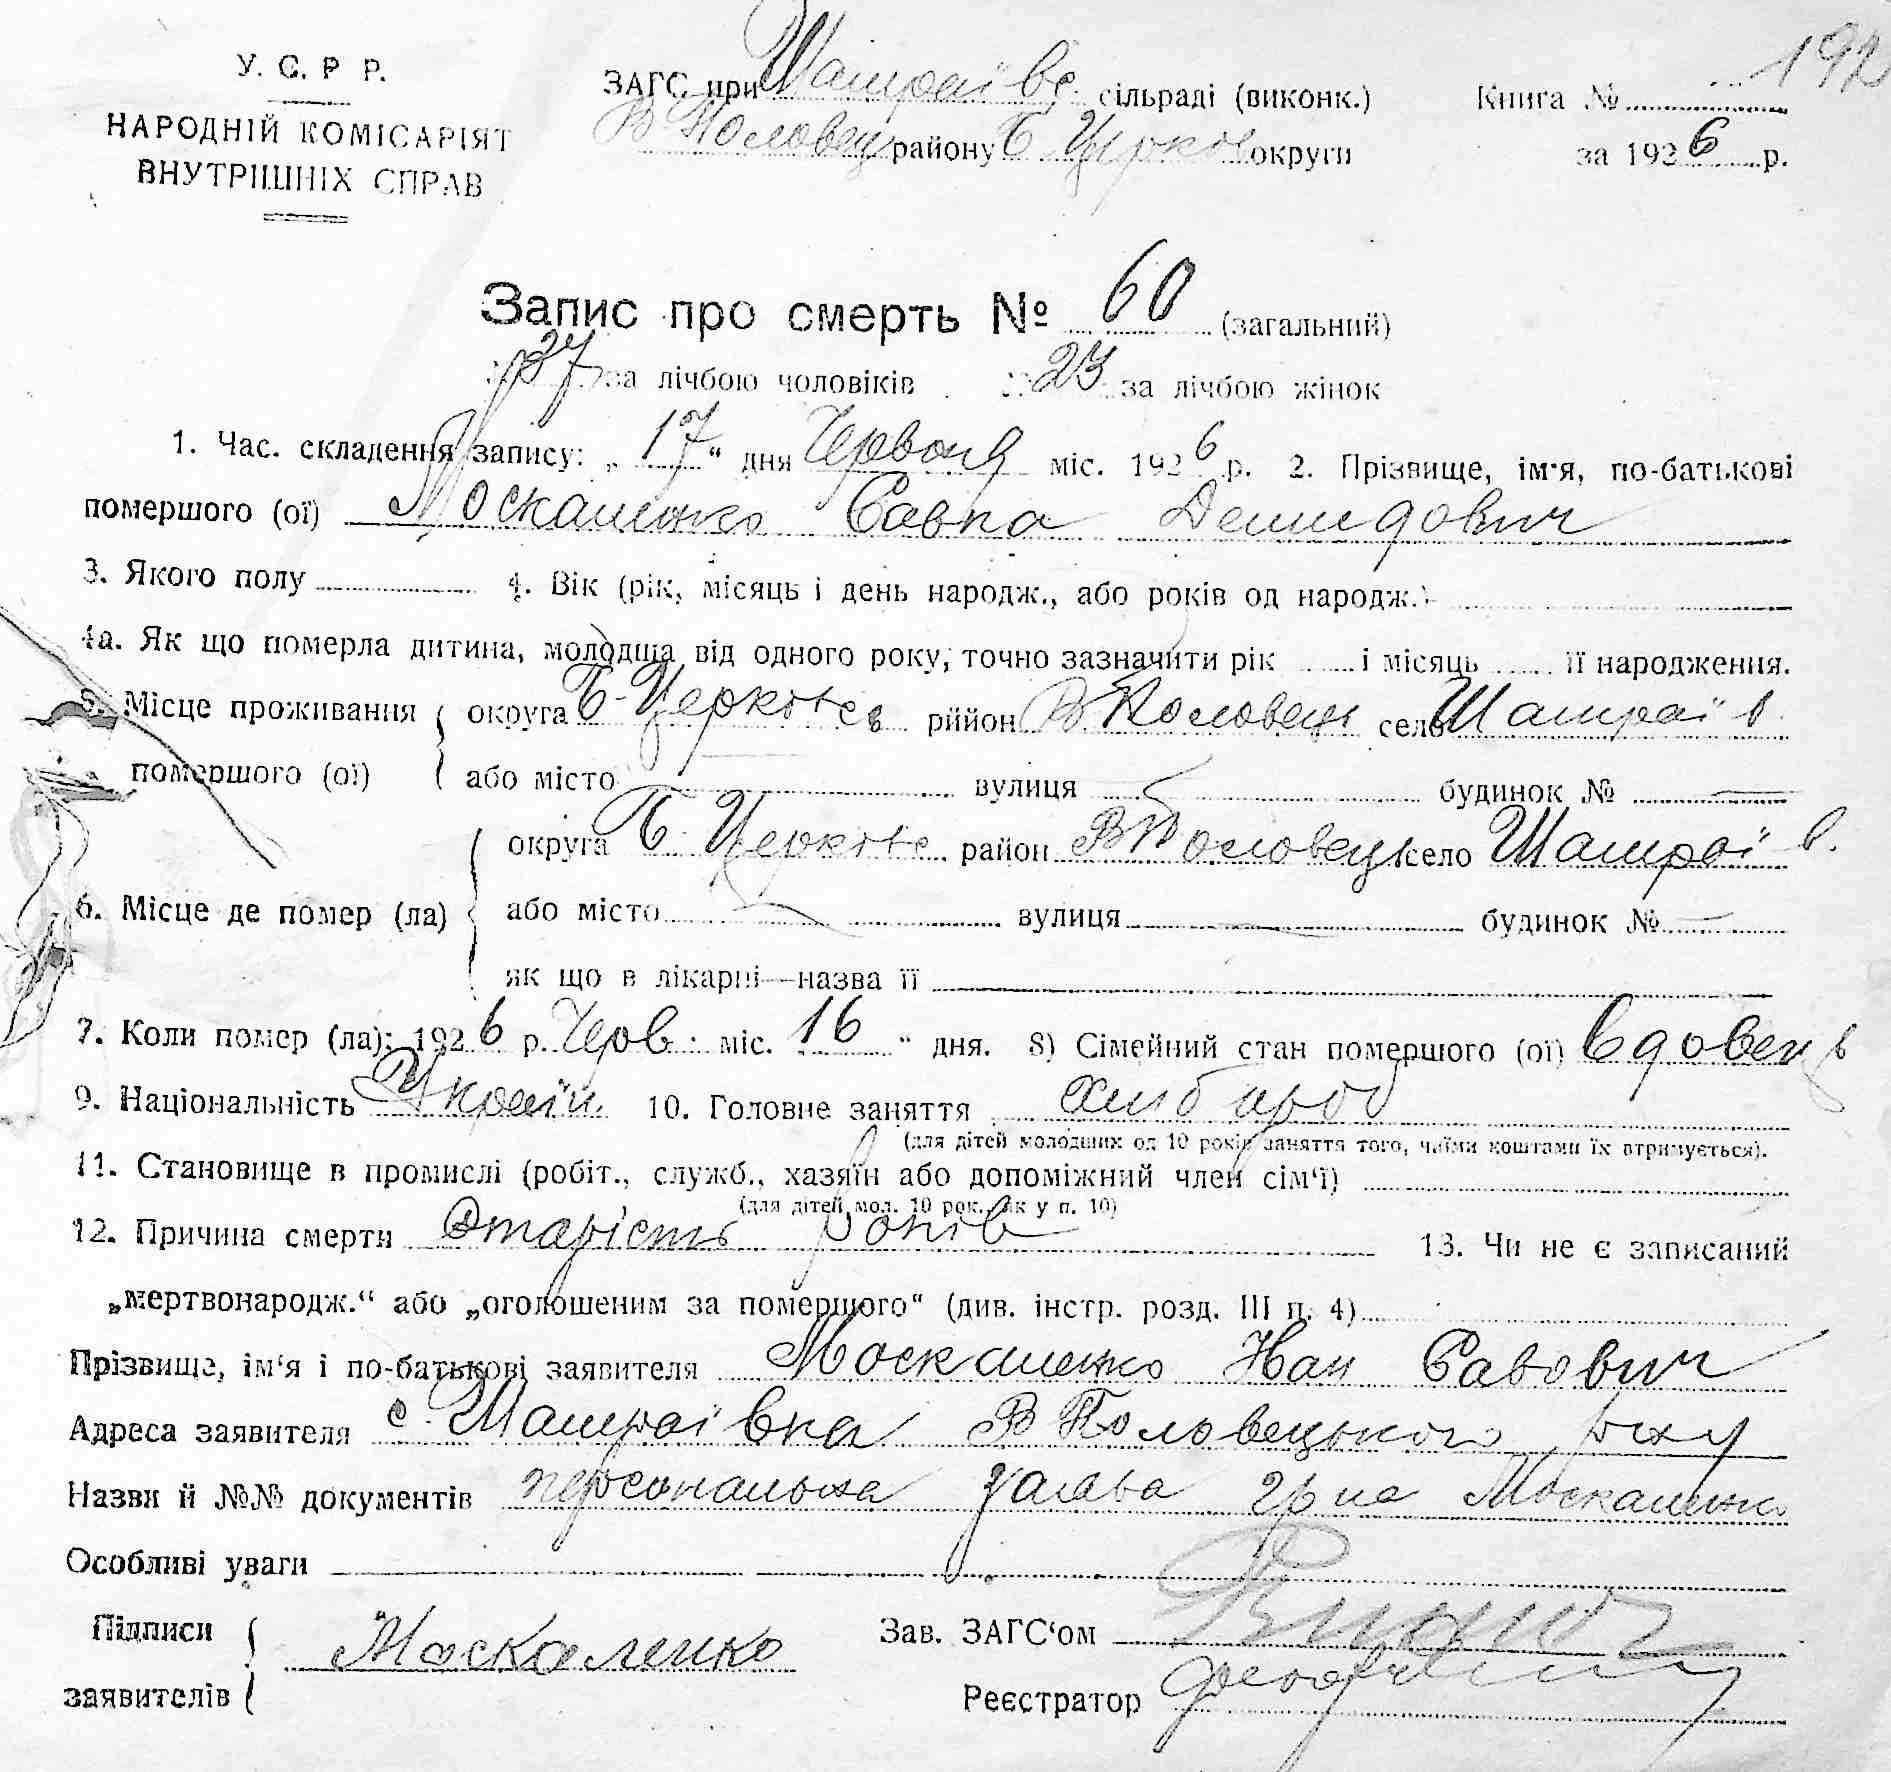 192
У. С. Р Р.
НАРОДНІЙ КОМІСАРІЯТ
ВНУТРІШНІХ СПРАВ
ЗАГС при Шамраївс. сільраді (виконк.)
В Половец району Б Церков округи
Книга №
за 1926 р.
Запис про смерть № 60 (загальний)
37 за лічбою чоловіків 23 за лічбою жінок
1. Час. складення запису: „17“ дня Червоня міс. 1926 р. 2. Прізвище, ім'я, по-батькові
помершого (ої) Москаленко Савка Демидович
3. Якого полу 4. Вік (рік, місяць і день народж., або років од народж.)
4а. Як що померла дитина, молодша від одного року, точно зазначити рік і місяць її народження.
5. Місце проживання округа Б-Церковсв рийон В Половецьк село Шамраїв
помершого (ої) або місто вулиця будинок №
округа Б-Церковс район В Половецьк село Шамраїв.
6. Місце де помер (ла) або місто вулиця будинок №
як що в лікарні—назва її
7. Коли помер (ла): 1926 р. Черв. міс. 16 “ дня. 8) Сімейний стан помершого (ої) вдовець
9. Національність Україн. 10. Головне заняття хлібороб
(для дітей молодших од 10 років заняття того, чиїми коштами їх втримується).
11. Становище в промислі (робіт., служб., хазяїн або допоміжний член сім'ї)
(для дітей мол. 10 рок. як у п. 10)
12. Причина смерти Старість років 13. Чи не є записаний
„мертвонародж.“ або „оголошеним за помершого“ (див. інстр. розд. III п. 4)
Прізвище, ім'я і по-батькові заявителя Москаленко Савович
Адреса заявителя с. Шамраївка В Половецького р-ну
Назви й №№ документів персональна заява гр на Москаленко
Особливі уваги
Підписи
заявителів
Москаленко
Зав. ЗАГС'ом
Реєстратор